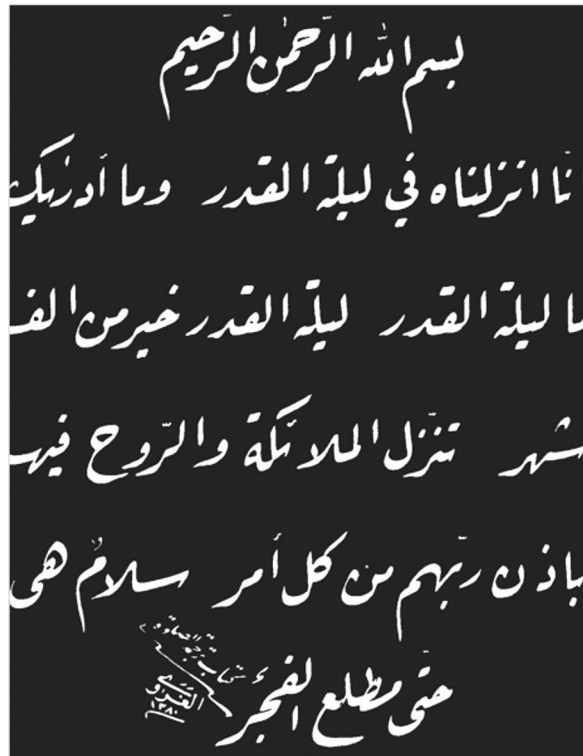 بسم الله الرّحمٰن الرّحيم
نّا انزلناه في ليلة القدر وما أدرٰيك
ما ليلة القدر ليلة القدر خير من الف
شهر تنزّل الملائكة والرّوح فيها
باذن ربّهم من كل أمر سلامٌ هى
حتّى مطلع الفجر
١٣٨٠